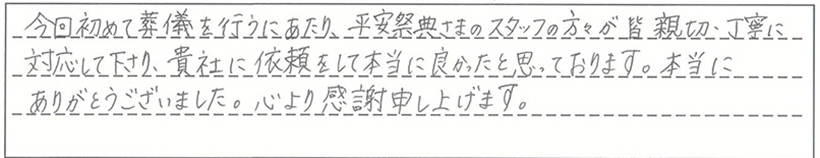 今回初めて葬儀を行うにあたり、平安祭典さまのスタッフの方々が皆親切、丁寧に
対応して下さり、貴社に依頼をして本当に良かったと思っております。本当に
ありがとうございました。心より感謝申し上げます。